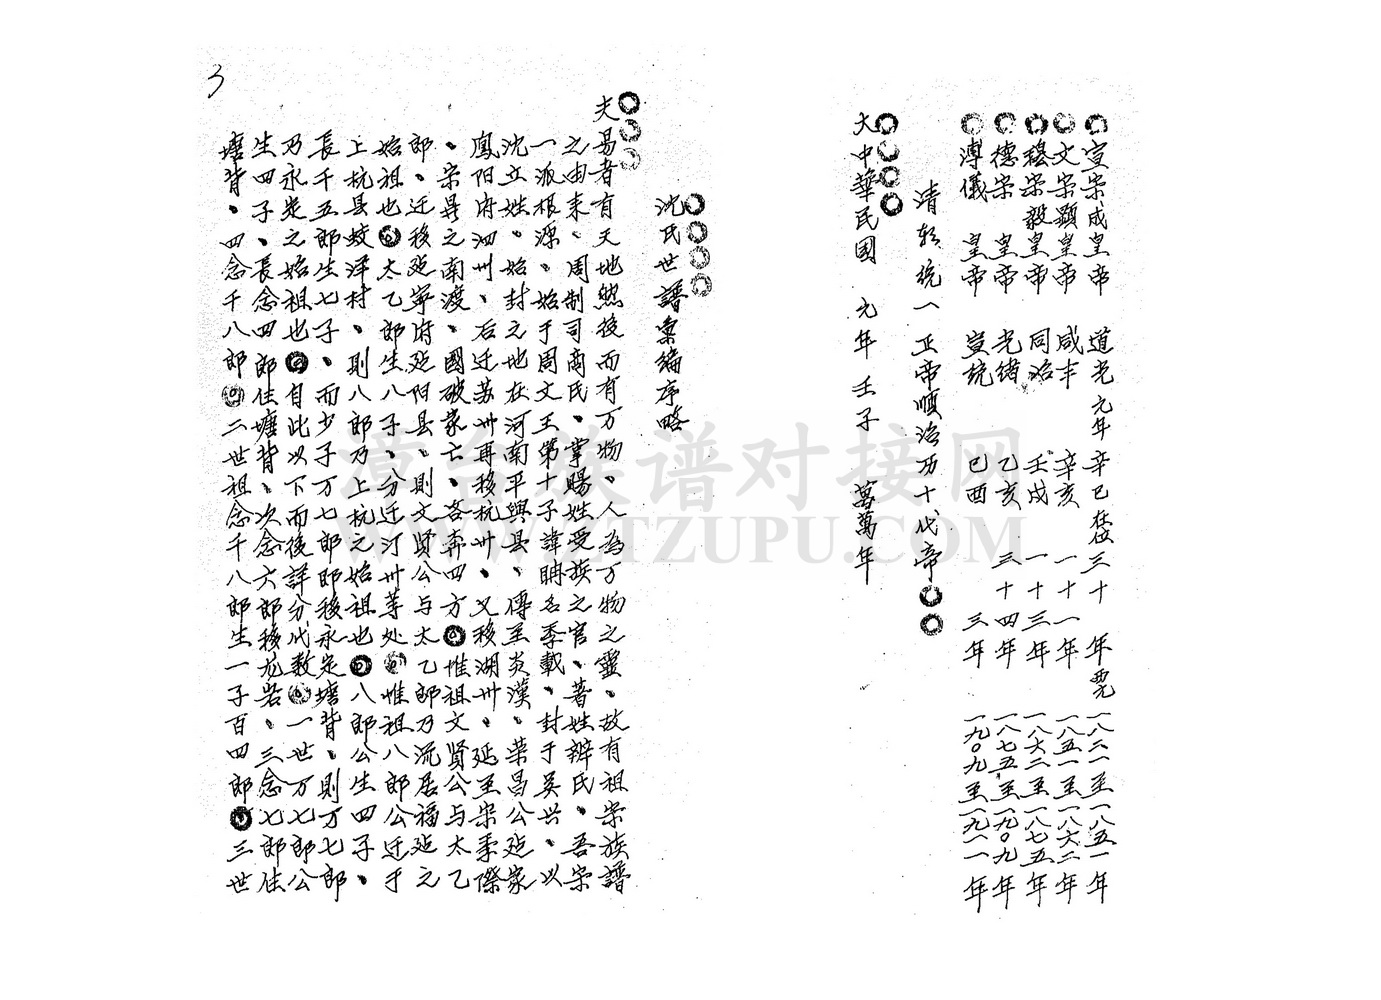 宣宗成皇帝 道光元年 辛巳在位三十 年 西元 一八二一至一八五一年
文宗顯皇帝 咸丰 辛亥 一十一年 一八五一至一八六二年
穆宗毅皇帝 同治 壬戌 一十三年 一八六二至一八七五年
德宗 皇帝 光緒 乙亥 三十四年 一八七五至一九0九年
溥儀 皇帝 宣統 己酉 三年 一九0九至一九一一年
清朝統一正帝順治历十代帝
大中華民國 元年 壬子 萬萬年
沈氏世譜彙編序略
夫易者有天地然後而有万物、人為万物之靈、故有祖宗族譜
之由来、周制司商氏、掌賜姓受族之官、著姓辨氏、吾宗
一派根源、始于周文王第十子諱聃名季載、封于吳兴、以
沈立姓、始封之地在河南平與县、傳至炎漢、荣昌公延家
鳳阳府泗州、后迁苏州再移杭州、又移湖州、延至宋季際
、宋昺之南渡、國破家亡、各奔四方 惟祖文賢公与太乙
郎、迁移延寧府延阳县、則文賢公与太乙郎乃流居福延之
始祖也 太乙郎生八子、分迁汀州等处 惟祖八郎公迁于
上杭县蛟洋村、則八郎乃上杭之始祖也 八郎公生四子、
長千五郎生七子、而少子万七郎郎移永定塘背、則万七郎
乃永定之始祖也 自此以下而後詳分代数 一世万七郎公
生四子、長念四郎住塘背、次念六郎移尤岩、三念七郎住
塘背、四念千八郎 二世祖念千八郎生一子百四郎 三世
3
漳台族谱对接网
WWW.ZTZUPU.COM